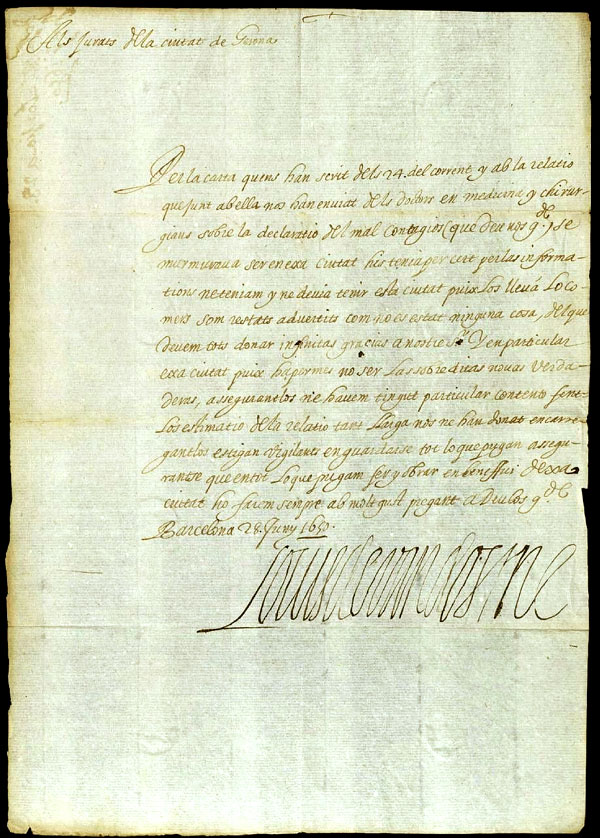 Als Jurats de la ciutat de Gerona
Per la carta quens han scrit dels 24. del corrent y ab la relatio
que junt ab ella nos han enviat dels doctors en medecina y chirur-
gians sobre la declaratio del mal contagios (que Deu nos g.de) se
murmurava ser en exa ciutat his tenia per cert per las informa-
tions ne teniam y ne devia tenir esta ciutat puix los llevá lo co-
mers som restats advertits com no es estat ninguna cosa, del que
devem tots donar infinitas gracias a nostre S.r Y en particular
exa ciutat puix ha permes no ser las sobreditas novas verda-
deras, assegurantlos ne havem tingut particular contento fent
los estimatio de la relatio tant llarga nos ne han donat encarre-
gantlos estigan vigilants en guardarse tot lo que pugan assegu-
rantse que en tot lo que pugam fer y obrar en benefissi de exa
ciutat ho farem sempre ab molt gust pregant a Deu los g.de
Barcelona 28. Juny 1650.
Louis de vandosme